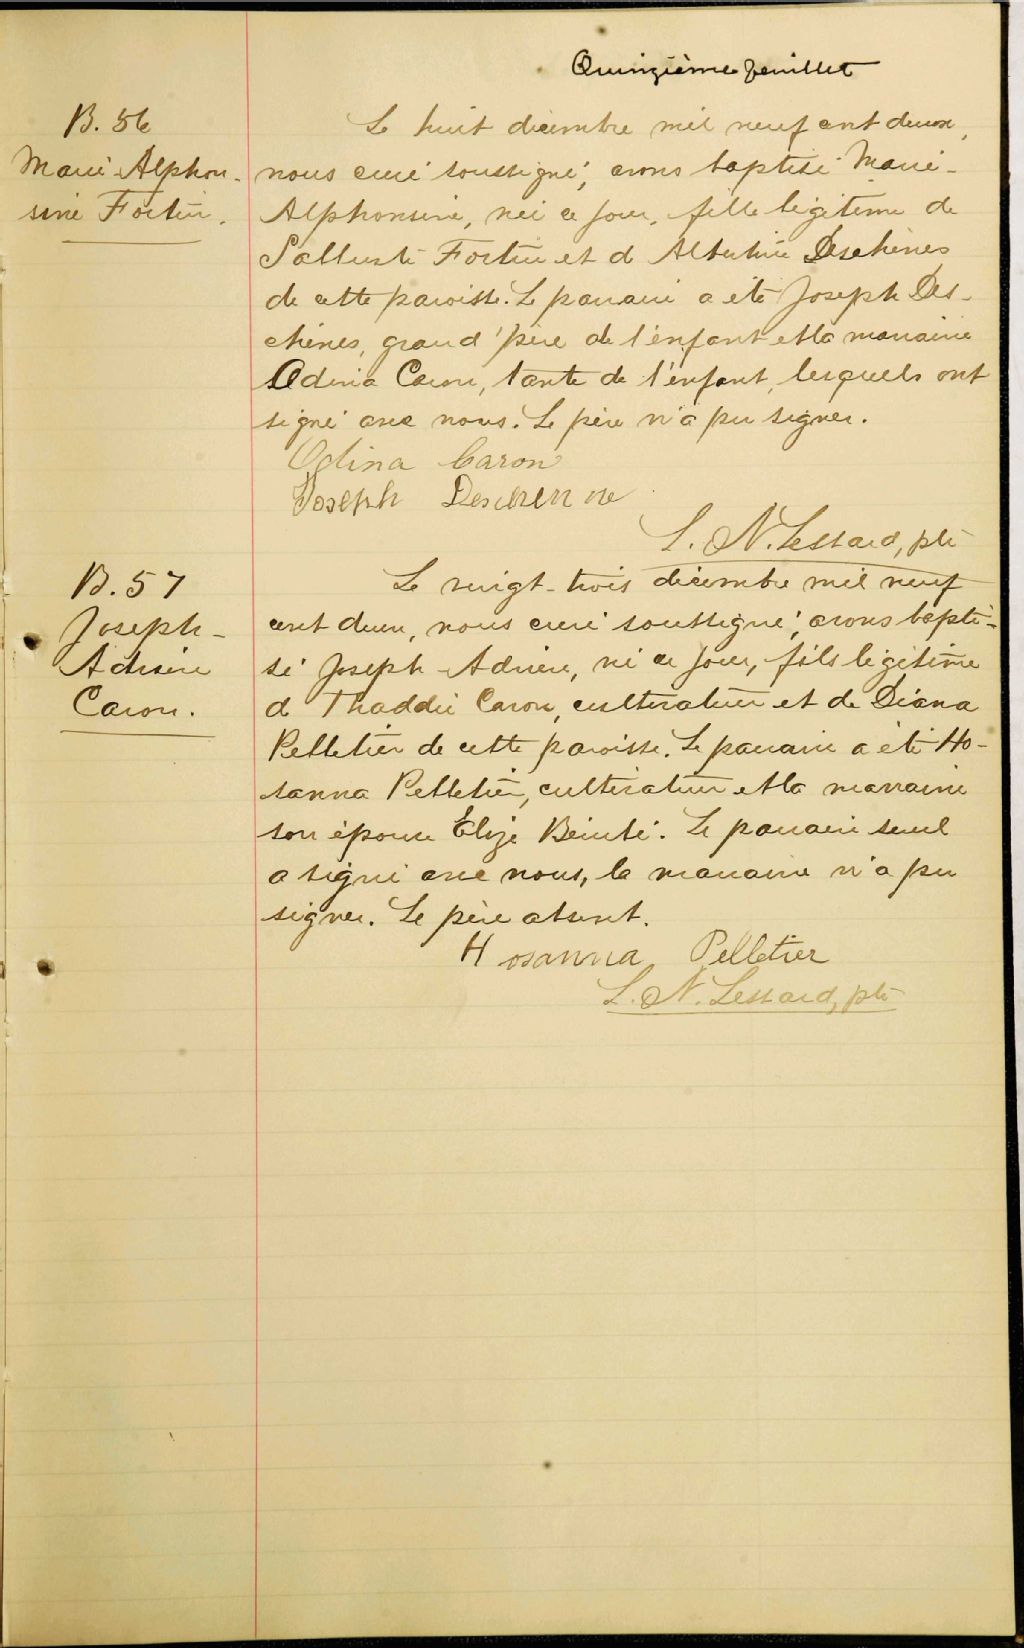 Quinzième feuillet
B. 56
Marie-Alphon-
sine Fortin.
Le huit décembre mil neuf cent deux,
nous curé soussigné, avons baptisé Marie-
Alphonsine, née ce jour, fille légitime de
Salluste Fortin et d'Albertine Deschènes
de cette paroisse. Le parrain a été Joseph Des-
chènes, grand'père de l'enfant et la marraine
Odina Caron, tante de l'enfant, lesquels ont
signé avec nous. Le père n'a pu signer.
Odina Caron
Joseph Deschenne
L. N. Lessard, ptre
B. 57
Joseph-
Adrien
Caron.
Le vingt-trois décembre mil neuf
cent deux, nous curé soussigné, avons bapti-
sé Joseph-Adrien, né ce jour, fils légitime
de Thaddée Caron, cultivateur et de Diana
Pelletier de cette paroisse. Le parrain a été Ho-
sanna Pelletier, cultivateur et la marraine
son épouse Elize Bérubé. Le parrain seul
a signé avec nous, la marraine n'a pu
signer. Le père absent.
Hosanna Pelletier
L. N. Lessard, ptre